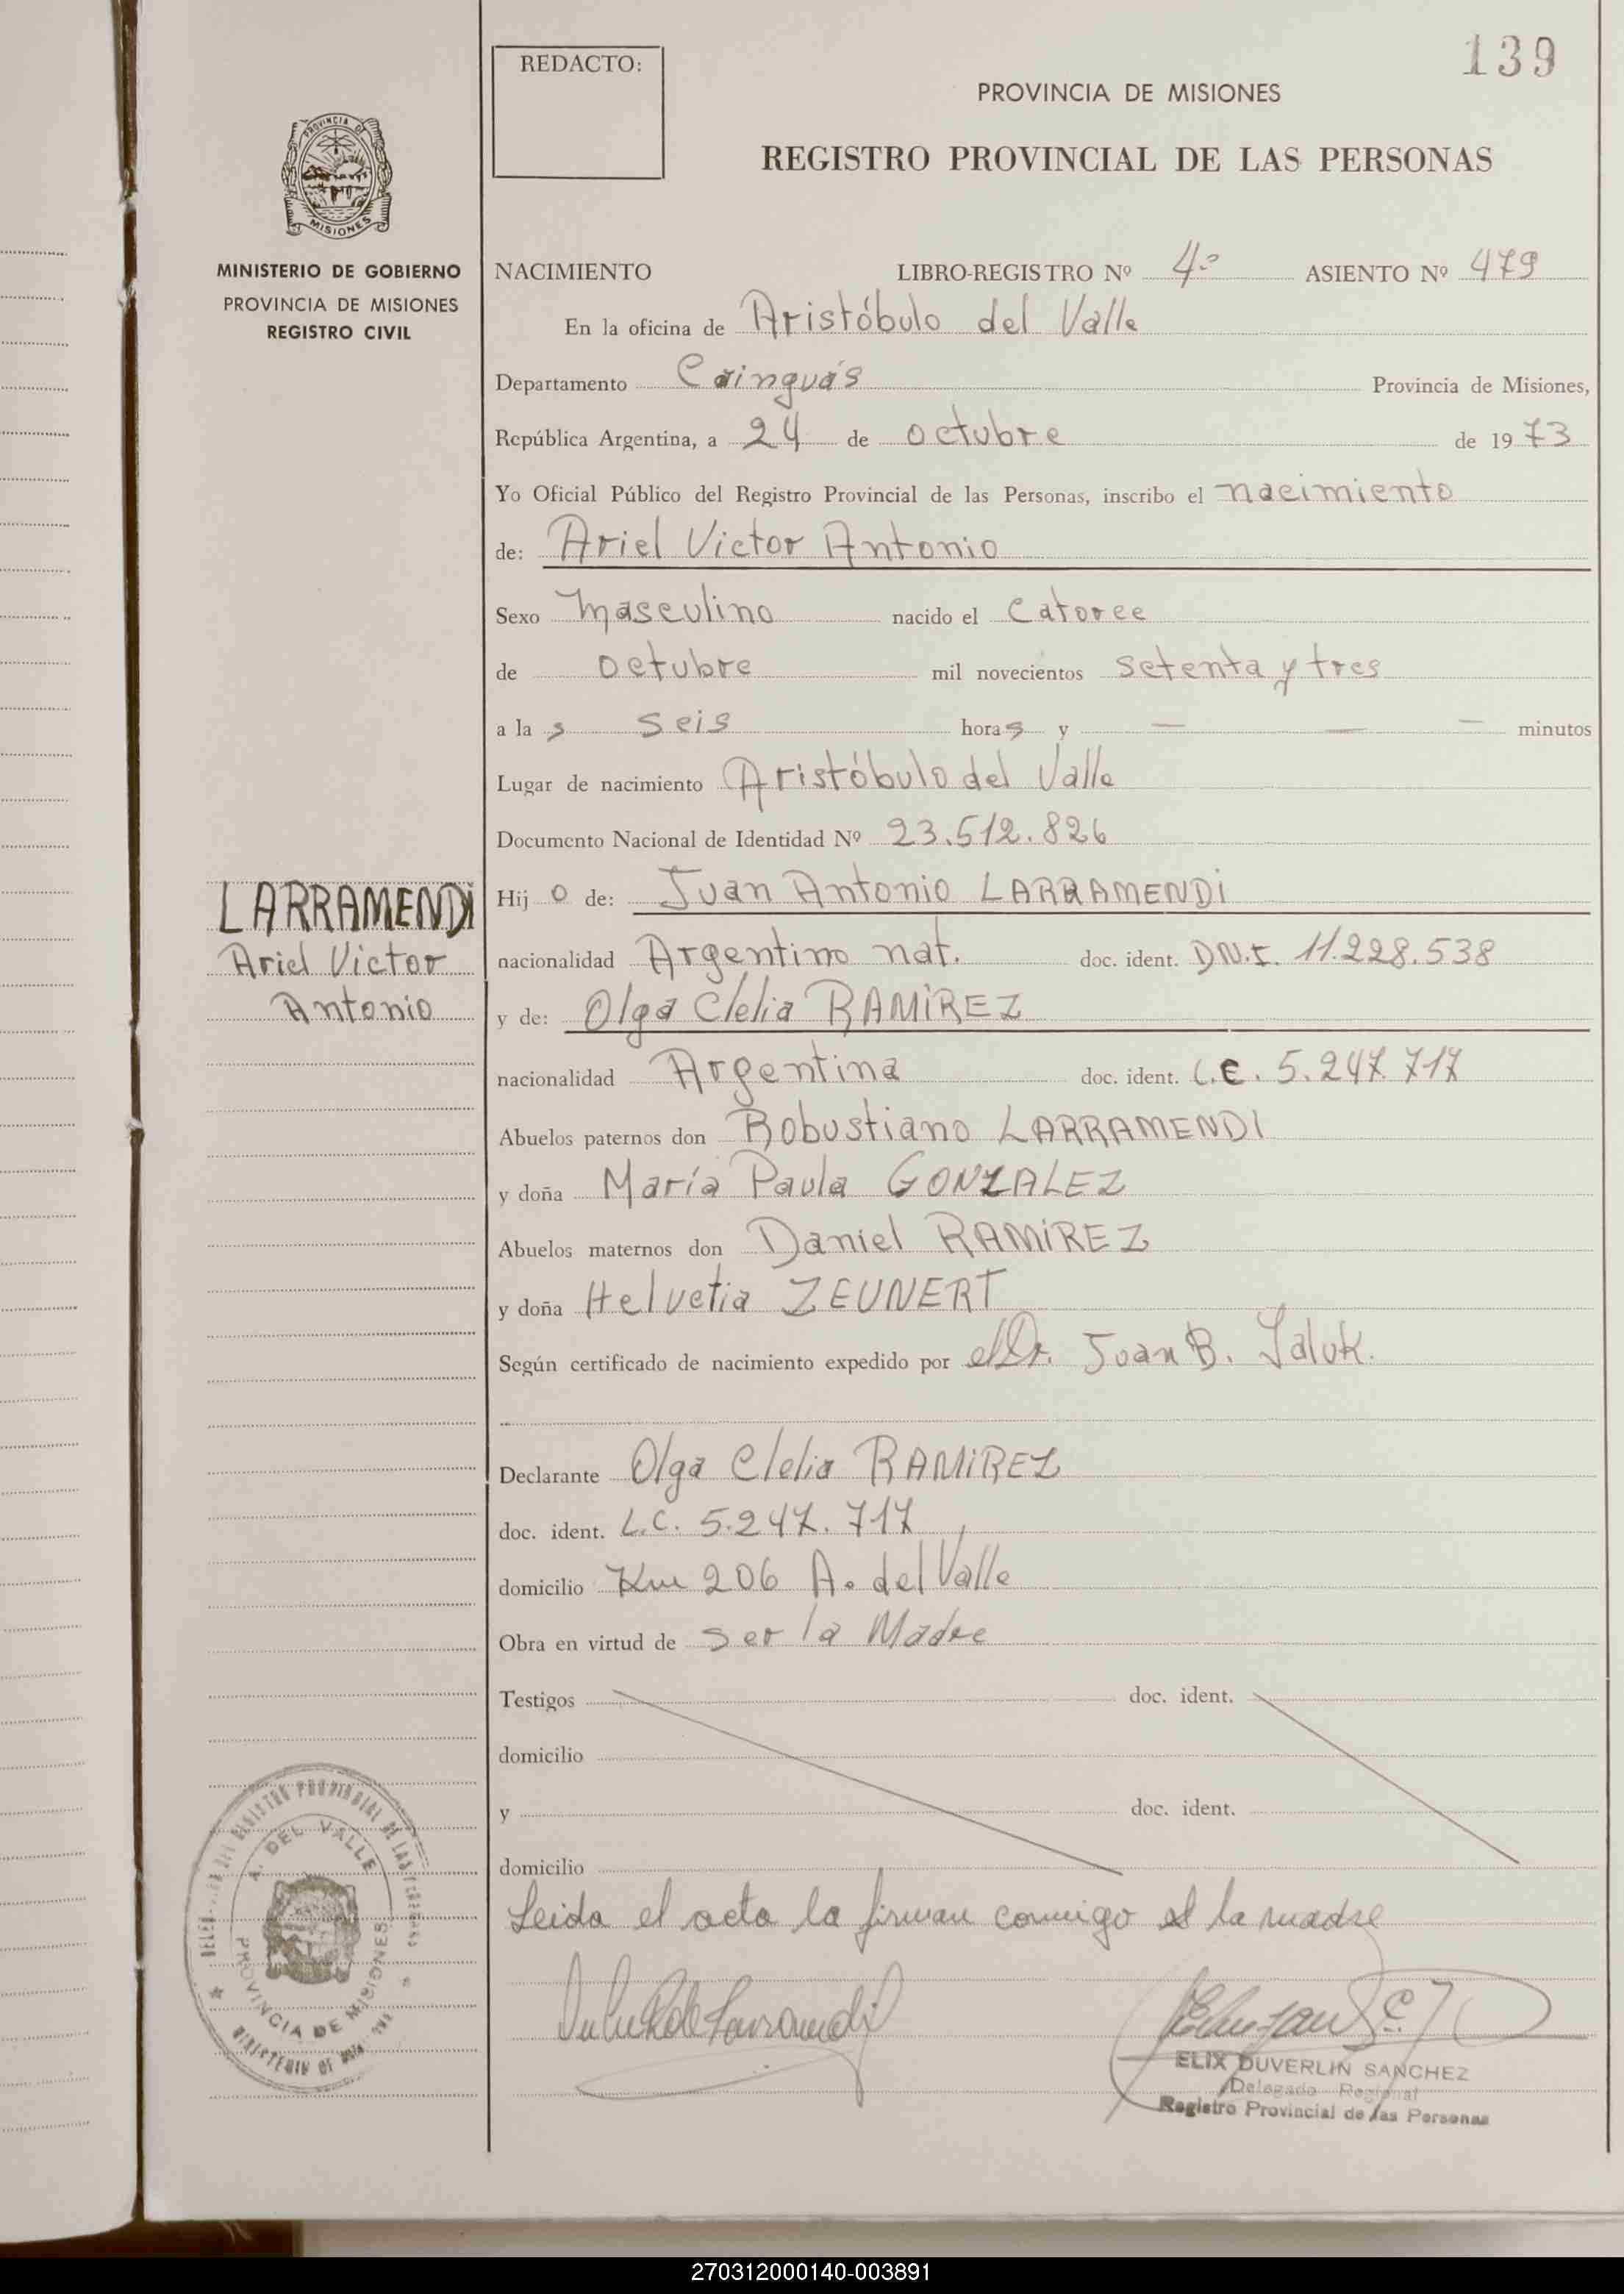 139
REDACTO:
PROVINCIA DE MISIONES
REGISTRO PROVINCIAL DE LAS PERSONAS
PROVINCIA DE
MISIONES
MINISTERIO DE GOBIERNO
PROVINCIA DE MISIONES
REGISTRO CIVIL
NACIMIENTO LIBRO-REGISTRO Nº 4º ASIENTO Nº 479
En la oficina de Aristóbulo del Valle
Departamento Cainguás Provincia de Misiones,
República Argentina, a 24 de octubre de 1973
Yo Oficial Público del Registro Provincial de las Personas, inscribo el nacimiento
de: Ariel Victor Antonio
Sexo masculino nacido el catorce
de octubre mil novecientos setenta y tres
a las seis horas y — — — minutos
Lugar de nacimiento Aristóbulo del Valle
Documento Nacional de Identidad Nº 23.512.826
LARRAMENDI
Ariel Victor
Antonio
Hijo de: Juan Antonio LARRAMENDI
nacionalidad Argentino nat. doc. ident. DN.I. 11.228.538
y de: Olga Clelia RAMIREZ
nacionalidad Argentina doc. ident. L.C. 5.247.717
Abuelos paternos don Robustiano LARRAMENDI
y doña María Paula GONZALEZ
Abuelos maternos don Daniel RAMIREZ
y doña Helvetia ZEUNERT
Según certificado de nacimiento expedido por el Dr. Juan B.
Declarante Olga Clelia RAMIREZ
doc. ident. L.C. 5.247.717
domicilio Km 206 A. del Valle
Obra en virtud de ser la Madre
Testigos doc. ident.
domicilio
y doc. ident.
domicilio
Leida el acta la firman conmigo la madre
REGISTRO PROVINCIAL DE LAS PERSONAS
A. DEL VALLE
PROVINCIA DE MISIONES
MINISTERIO DE
ELIX DUVERLIN SANCHEZ
Delegado Regional
Registro Provincial de las Personas
270312000140-003891